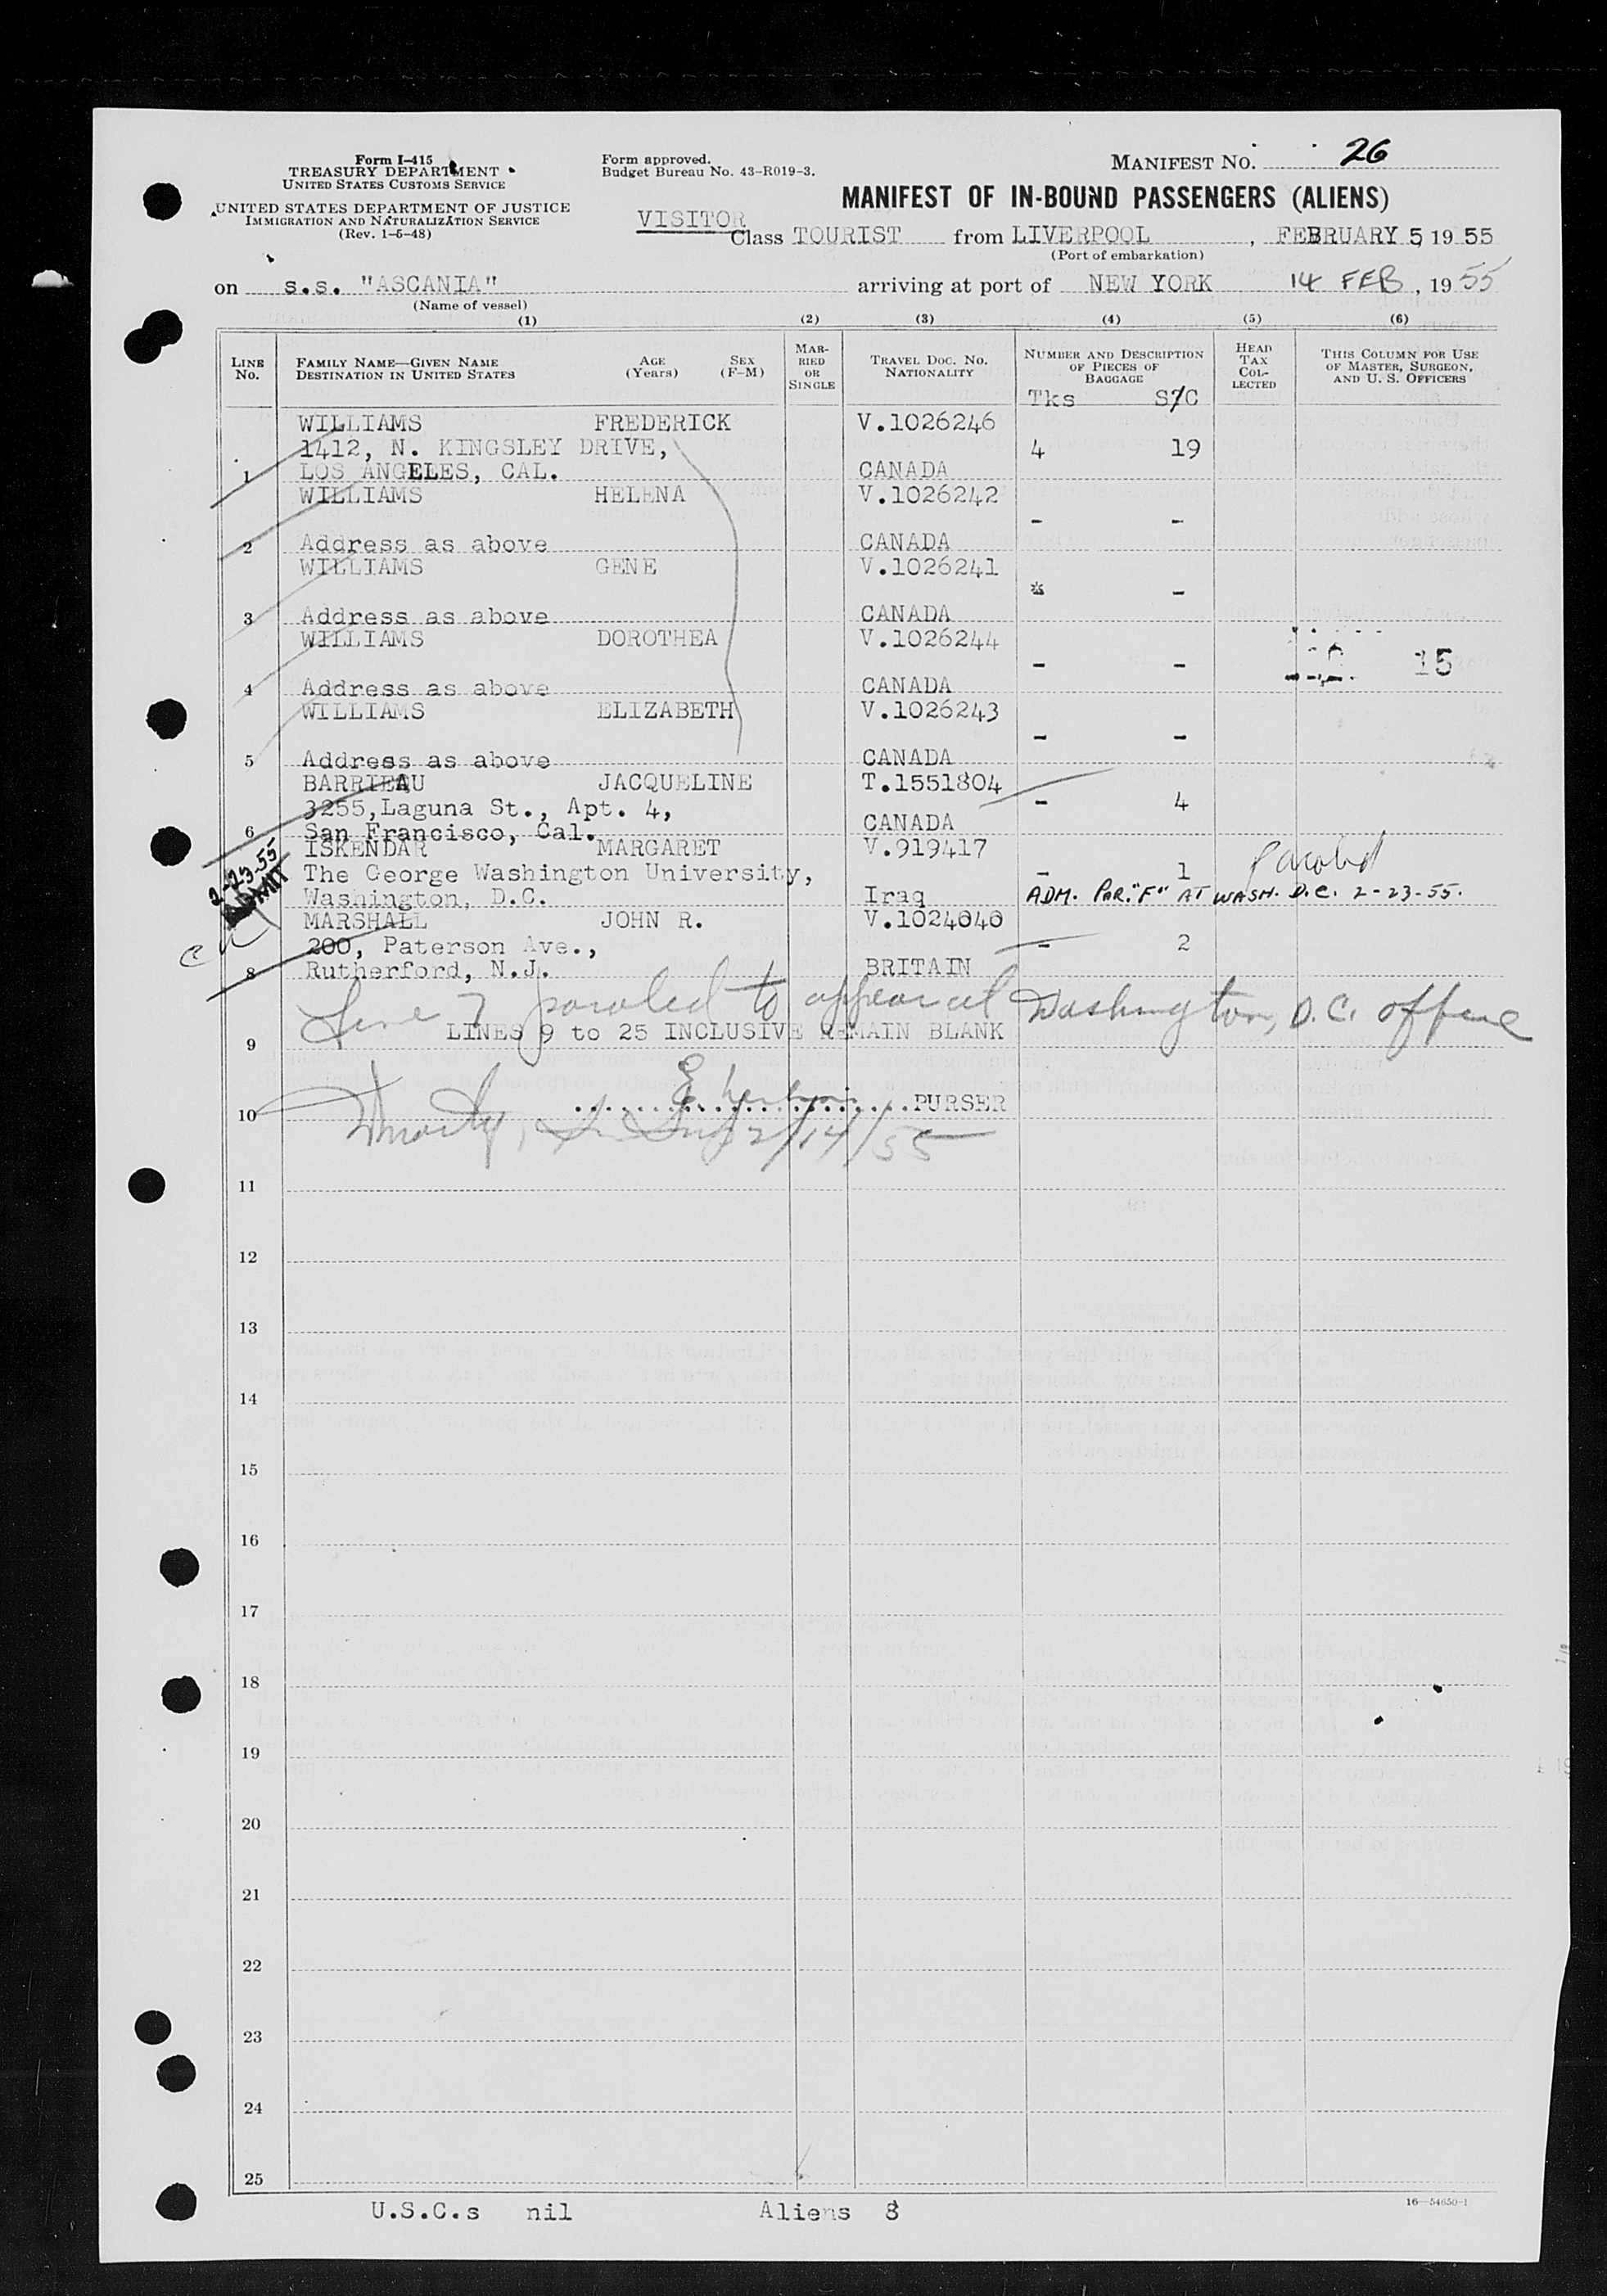 Form I-415
TREASURY DEPARTMENT
UNITED STATES CUSTOMS SERVICE
UNITED STATES DEPARTMENT OF JUSTICE
IMMIGRATION AND NATURALIZATION SERVICE
(Rev. 1-5-48)
Form approved.
Budget Bureau No. 43-R019-3.
MANIFEST NO. 26
MANIFEST OF IN-BOUND PASSENGERS (ALIENS)
VISITOR
Class TOURIST from LIVERPOOL, FEBRUARY 5, 1955
(Port of embarkation)
on s.s. "ASCANIA" arriving at port of NEW YORK 14 FEB, 1955
(Name of vessel)
(1) (2) (3) (4) (5) (6)
LINE No.
FAMILY NAME—GIVEN NAME
DESTINATION IN UNITED STATES
AGE (Years)
SEX (F-M)
MARRIED OR SINGLE
TRAVEL DOC. NO.
NATIONALITY
NUMBER AND DESCRIPTION
OF PIECES OF
BAGGAGE
HEAD TAX COLLECTED
THIS COLUMN FOR USE
OF MASTER, SURGEON,
AND U. S. OFFICERS
Tks S/C
WILLIAMS FREDERICK V.1026246
1412, N. KINGSLEY DRIVE, 4 19
1 LOS ANGELES, CAL. CANADA
WILLIAMS HELENA V.1026242
- -
2 Address as above CANADA
WILLIAMS GENE V.1026241
* -
3 Address as above CANADA
WILLIAMS DOROTHEA V.1026244
- - 15
4 Address as above CANADA
WILLIAMS ELIZABETH V.1026243
- -
5 Address as above CANADA
BARRIEAU JACQUELINE T.1551804
3255,Laguna St., Apt. 4, - 4
6 San Francisco, Cal. CANADA
ISKENDAR MARGARET V.919417
2-23-55 The George Washington University, - 1 Paroled
ADMIT Washington, D.C. Iraq ADM. PAR. "F" AT WASH. D.C. 2-23-55.
MARSHALL JOHN R. V.1024040
200, Paterson Ave., - 2
8 Rutherford, N.J. BRITAIN
Line 7 paroled to appear at Washington, D.C. office
9 LINES 9 to 25 INCLUSIVE REMAIN BLANK
10 PURSER
2/14/55
11
12
13
14
15
16
17
18
19
20
21
22
23
24
25
U.S.C.s nil Aliens 8
16—54650-1